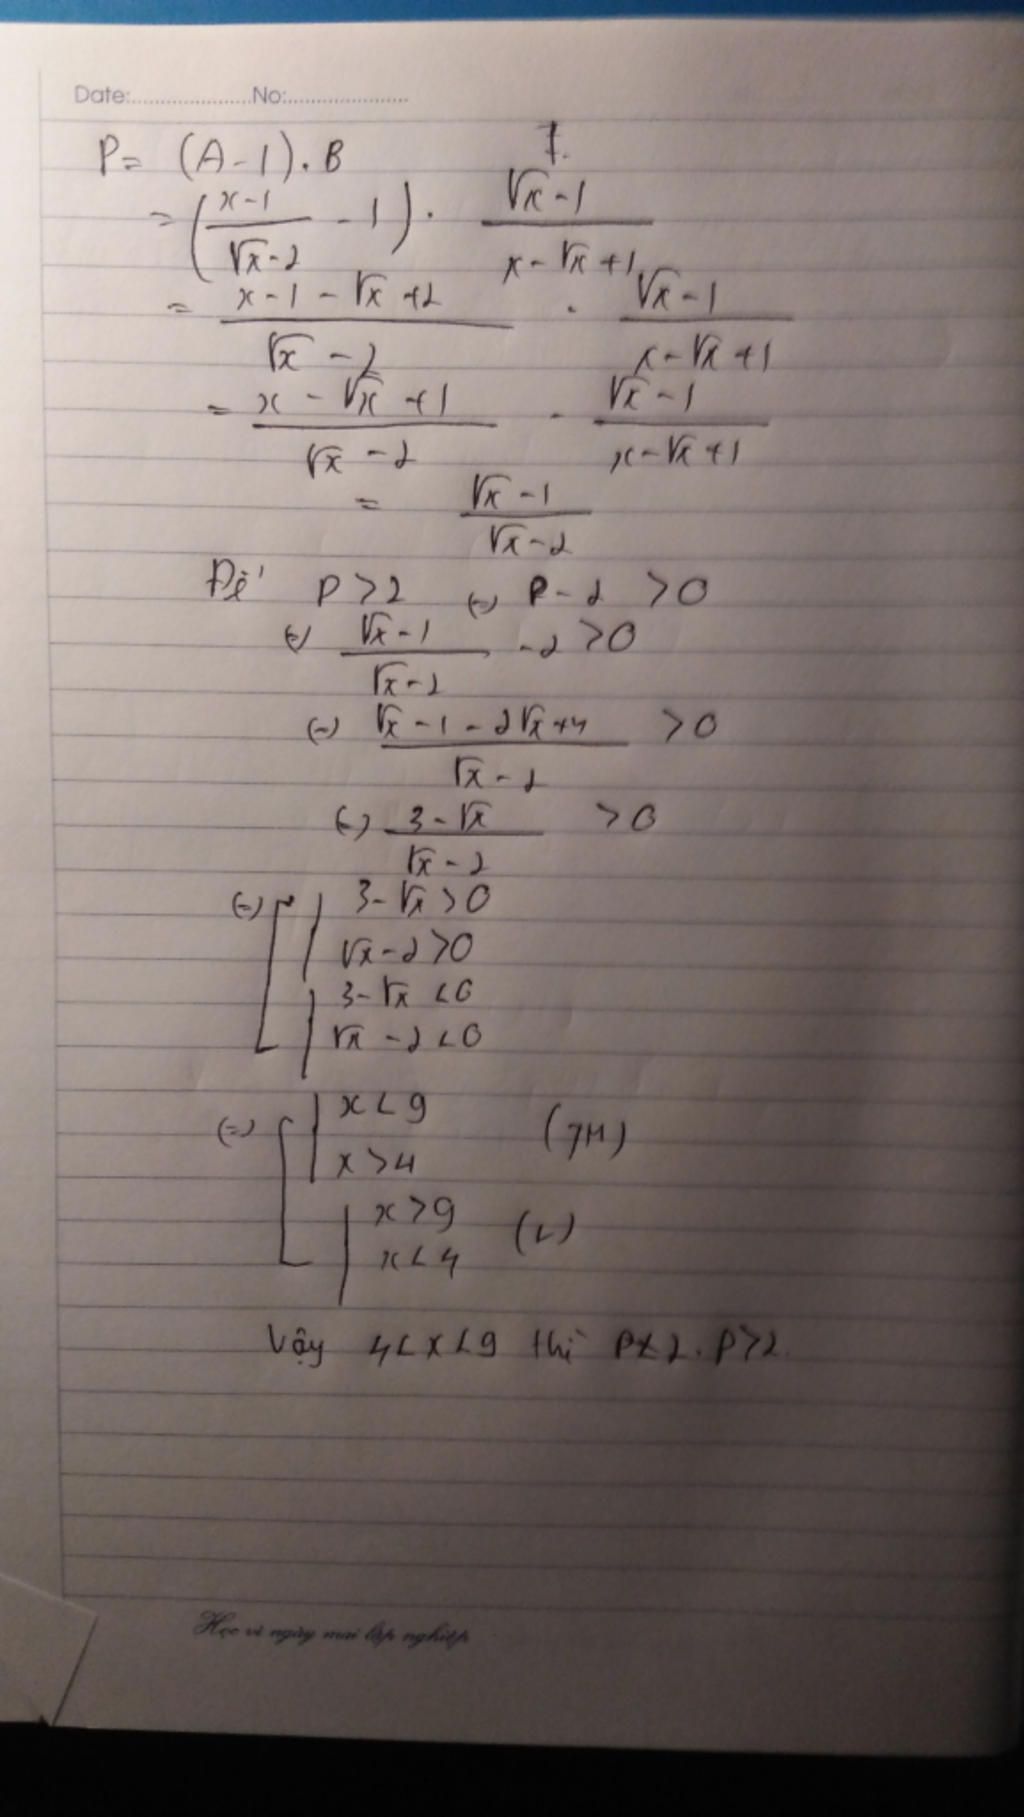 Date:.....................No:.....................
P = (A - 1) . B
= (\frac{x-1}{√x-2} - 1) . \frac{√x-1}{x-√x+1}
= \frac{x-1-√x+2}{√x-2} . \frac{√x-1}{x-√x+1}
= \frac{x-√x+1}{√x-2} . \frac{√x-1}{x-√x+1}
= \frac{√x-1}{√x-2}
Để P > 2 (=) P - 2 > 0
(=) \frac{√x-1}{√x-2} - 2 > 0
(=) \frac{√x-1-2√x+4}{√x-2} > 0
(=) \frac{3-√x}{√x-2} > 0
(=) 3-√x > 0
√x-2 > 0
3-√x < 0
√x-2 < 0
(=) x < 9
x > 4 (TM)
x > 9
x < 4 (L)
Vậy 4 < x < 9 thì P > 2.
Học vì ngày mai lập nghiệp